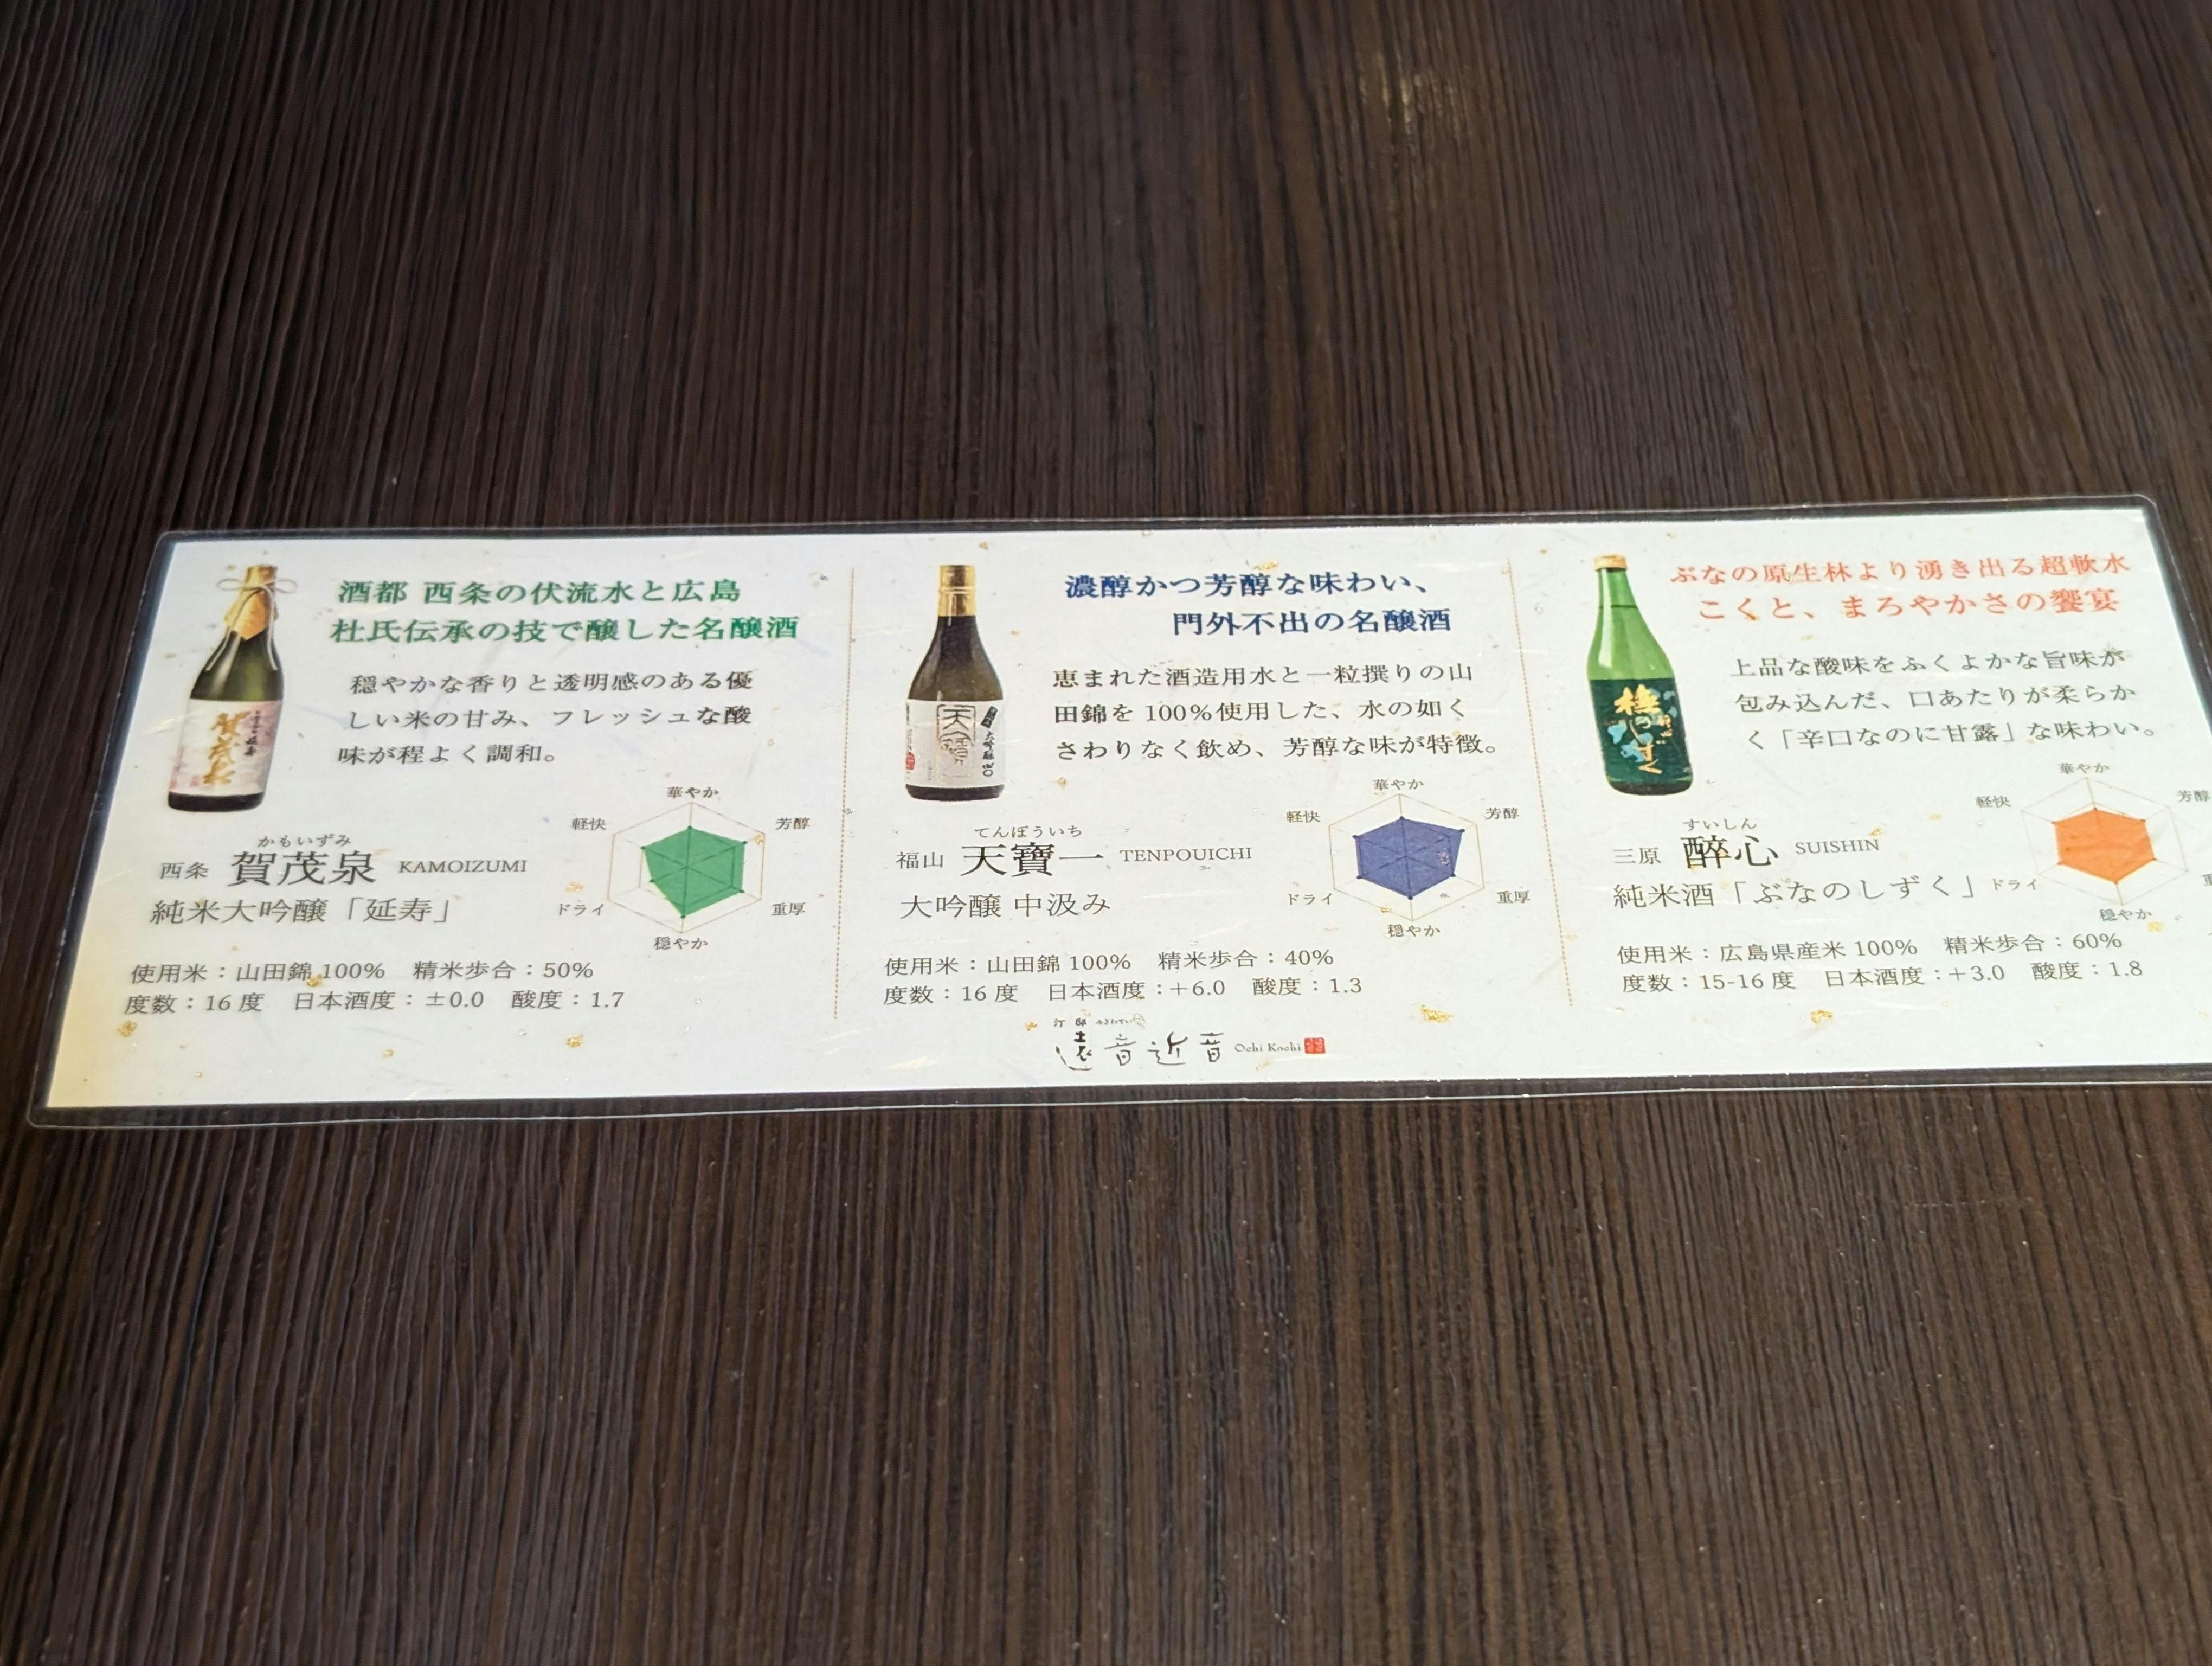 酒都 西条の伏流水と広島
杜氏伝承の技で醸した名醸酒
穏やかな香りと透明感のある優
しい米の甘み、フレッシュな酸
味が程よく調和。
賀茂泉
華やか
芳醇
重厚
穏やか
ドライ
軽快
かもいずみ
西条 賀茂泉 KAMOIZUMI
純米大吟醸「延寿」
使用米：山田錦 100% 精米歩合：50%
度数：16 度 日本酒度：±0.0 酸度：1.7
濃醇かつ芳醇な味わい、
門外不出の名醸酒
恵まれた酒造用水と一粒撰りの山
田錦を 100%使用した、水の如く
さわりなく飲め、芳醇な味が特徴。
華やか
芳醇
重厚
穏やか
ドライ
軽快
てんぽういち
福山 天寶一 TENPOUICHI
大吟醸 中汲み
使用米：山田錦 100% 精米歩合：40%
度数：16 度 日本酒度：+6.0 酸度：1.3
ぶなの原生林より湧き出る超軟水
こくと、まろやかさの饗宴
上品な酸味をふくよかな旨味が
包み込んだ、口あたりが柔らか
く「辛口なのに甘露」な味わい。
華やか
芳醇
穏やか
ドライ
軽快
すいしん
三原 醉心 SUISHIN
純米酒「ぶなのしずく」
使用米：広島県産米 100% 精米歩合：60%
度数：15-16 度 日本酒度：+3.0 酸度：1.8
汀邸
遠音近音 Ochi Kochi